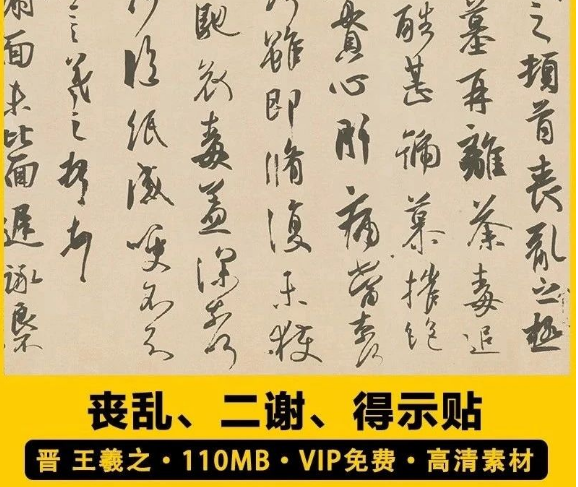 之頓首喪亂之極
墓再離荼毒追
酷甚號慕摧絕
貫心肝痛當奈何
雖即脩復未獲
馳哀毒益深奈何
臨紙感哽不知
言羲之頓首
面未比面遲詠良不
丧乱、二谢、得示贴
晋 王羲之·110MB·VIP免费·高清素材